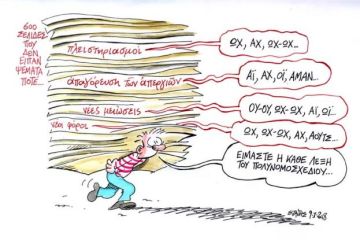 600
ΣΕΛΙΔΕΣ
ΠΟΥ
ΔΕΝ
ΕΙΠΑΝ
ΨΕΜΑΤΑ
ΠΟΤΕ...
πλειστηριασμοί
ΩΧ, ΑΧ, ΩΧ-ΩΧ...
απαγόρευση των απεργιών
ΑΪ, ΑΧ, ΟΪ, ΑΜΑΝ...
νέες μειώσεις
ΟΥ-ΟΥ, ΩΧ-ΩΧ, ΑΪ, ΩΪ...
νέοι φόροι
ΩΧ, ΩΧ-ΩΧ, ΑΧ, ΑΟΥΤΣ...
ΕΙΜΑΣΤΕ Η ΚΑΘΕ ΛΕΞΗ
ΤΟΥ ΠΟΛΥΝΟΜΟΣΧΕΔΙΟΥ...